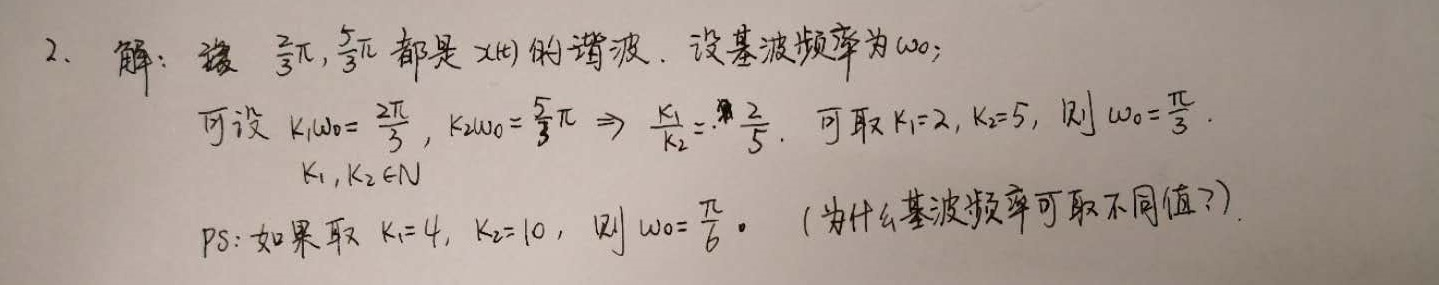 2. 解: $\frac{2}{3}\pi, \frac{5}{3}\pi$ 都是 x(t) 的谐波. 设基波频率为ω₀;
可设 $K_1\omega_0=\frac{2\pi}{3}, K_2\omega_0=\frac{5}{3}\pi \Rightarrow \frac{K_1}{K_2}=\frac{2}{5}$. 可取 K₁=2, K₂=5, 则 $\omega_0=\frac{\pi}{3}$.
K₁, K₂∈N
PS: 如果取 K₁=4, K₂=10, 则 $\omega_0=\frac{\pi}{6}$。 (为什么基波频率可取不同值?).